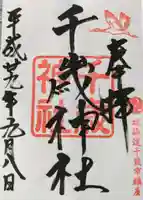 奉拝
北海道千歳市鎮座
千歳神社
平成廿九年元月八日